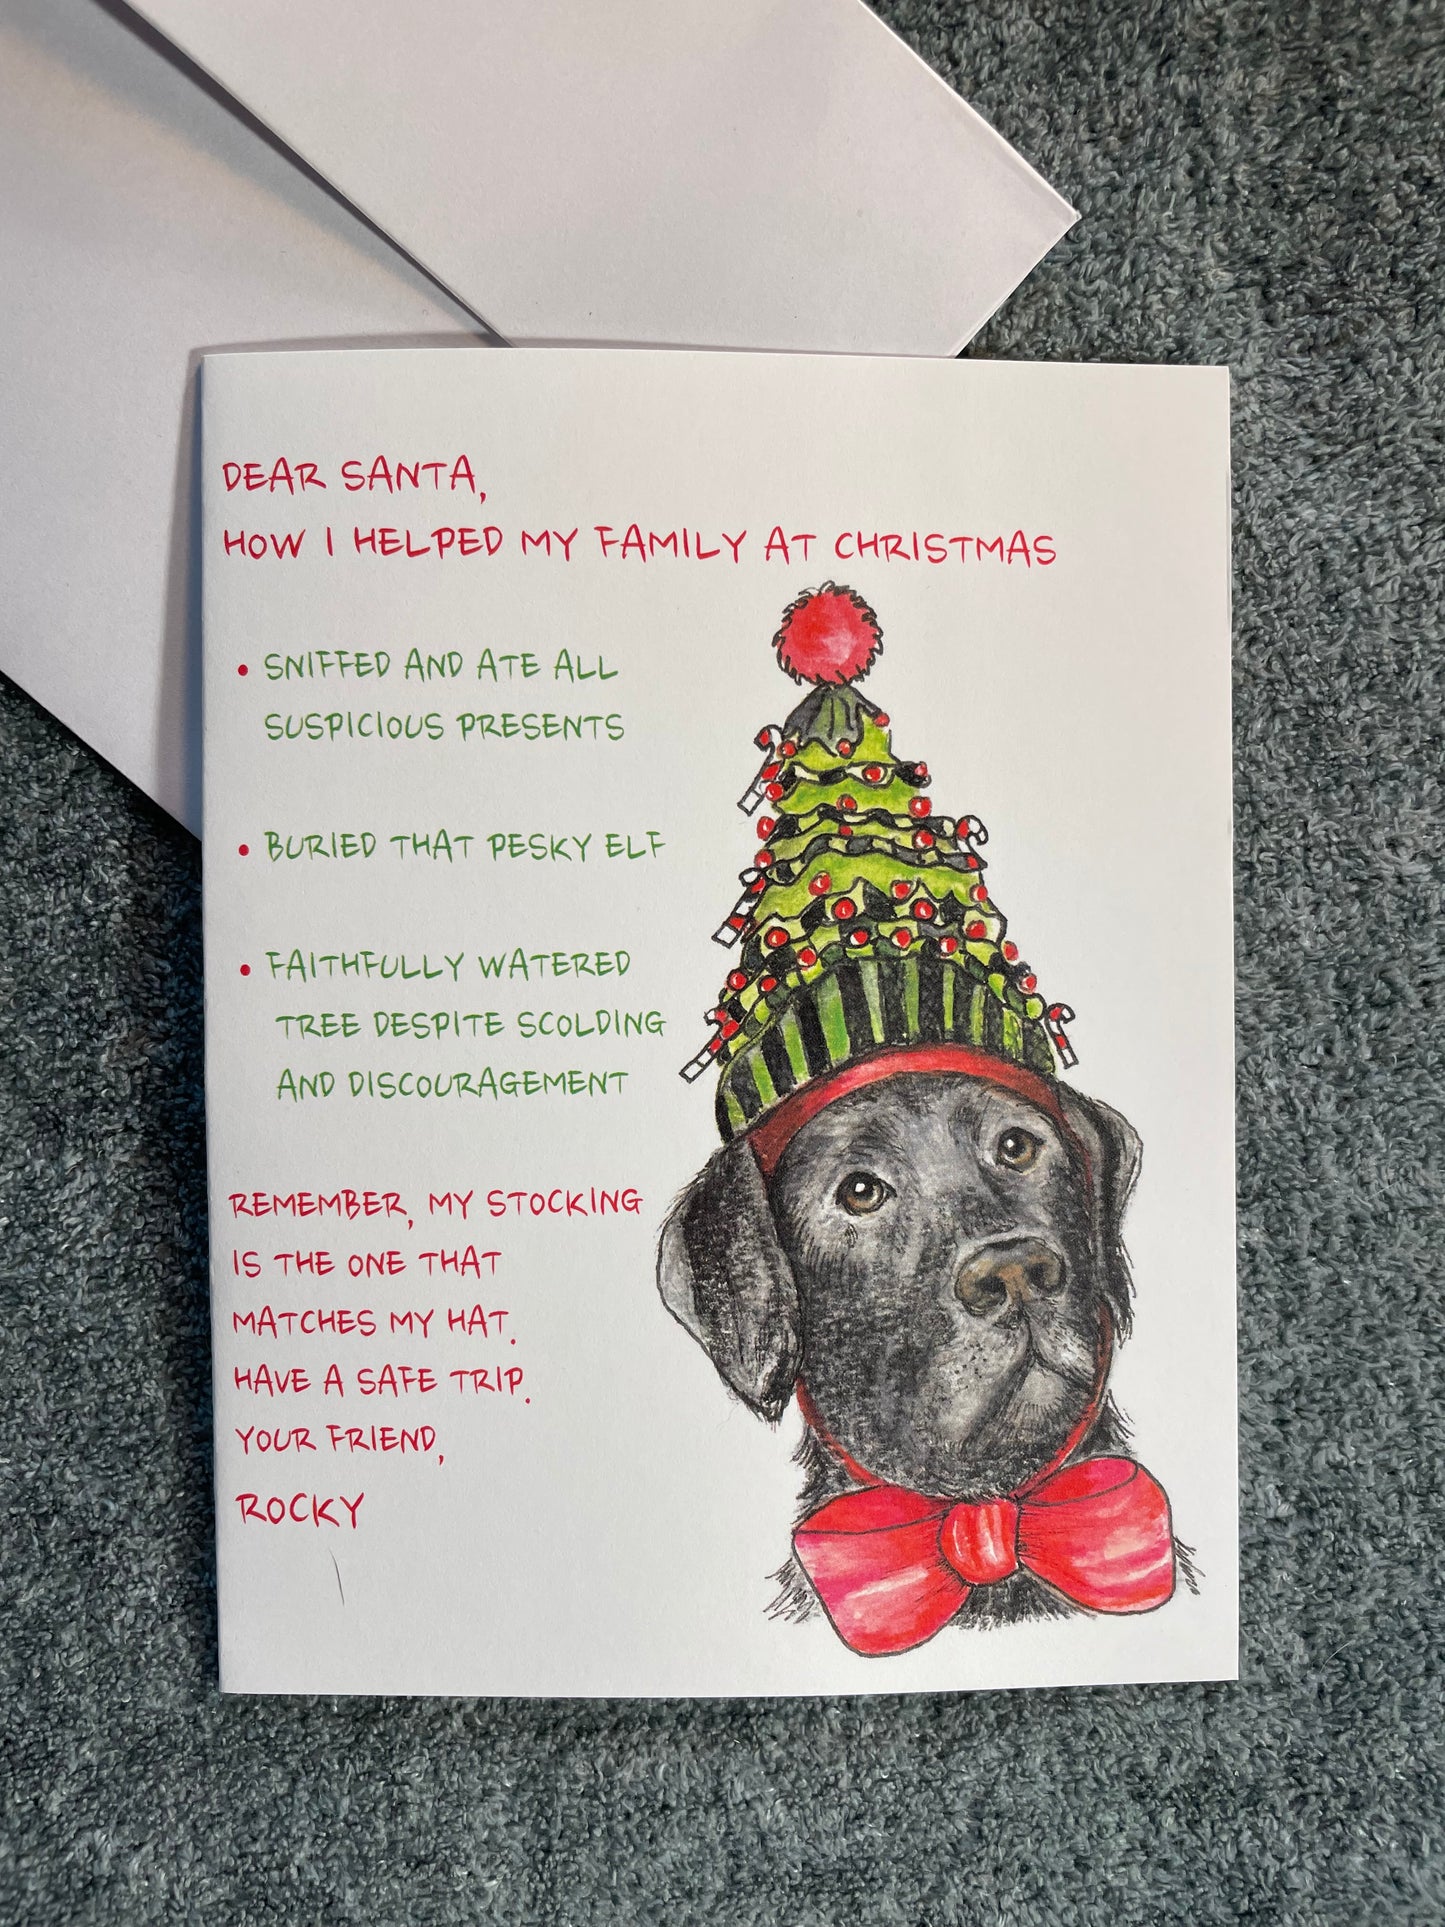 DEAR SANTA,
HOW I HELPED MY FAMILY AT CHRISTMAS
• SNIFFED AND ATE ALL
SUSPICIOUS PRESENTS
• BURIED THAT PESKY ELF
• FAITHFULLY WATERED
TREE DESPITE SCOLDING
AND DISCOURAGEMENT
REMEMBER, MY STOCKING
IS THE ONE THAT
MATCHES MY HAT.
HAVE A SAFE TRIP.
YOUR FRIEND,
ROCKY